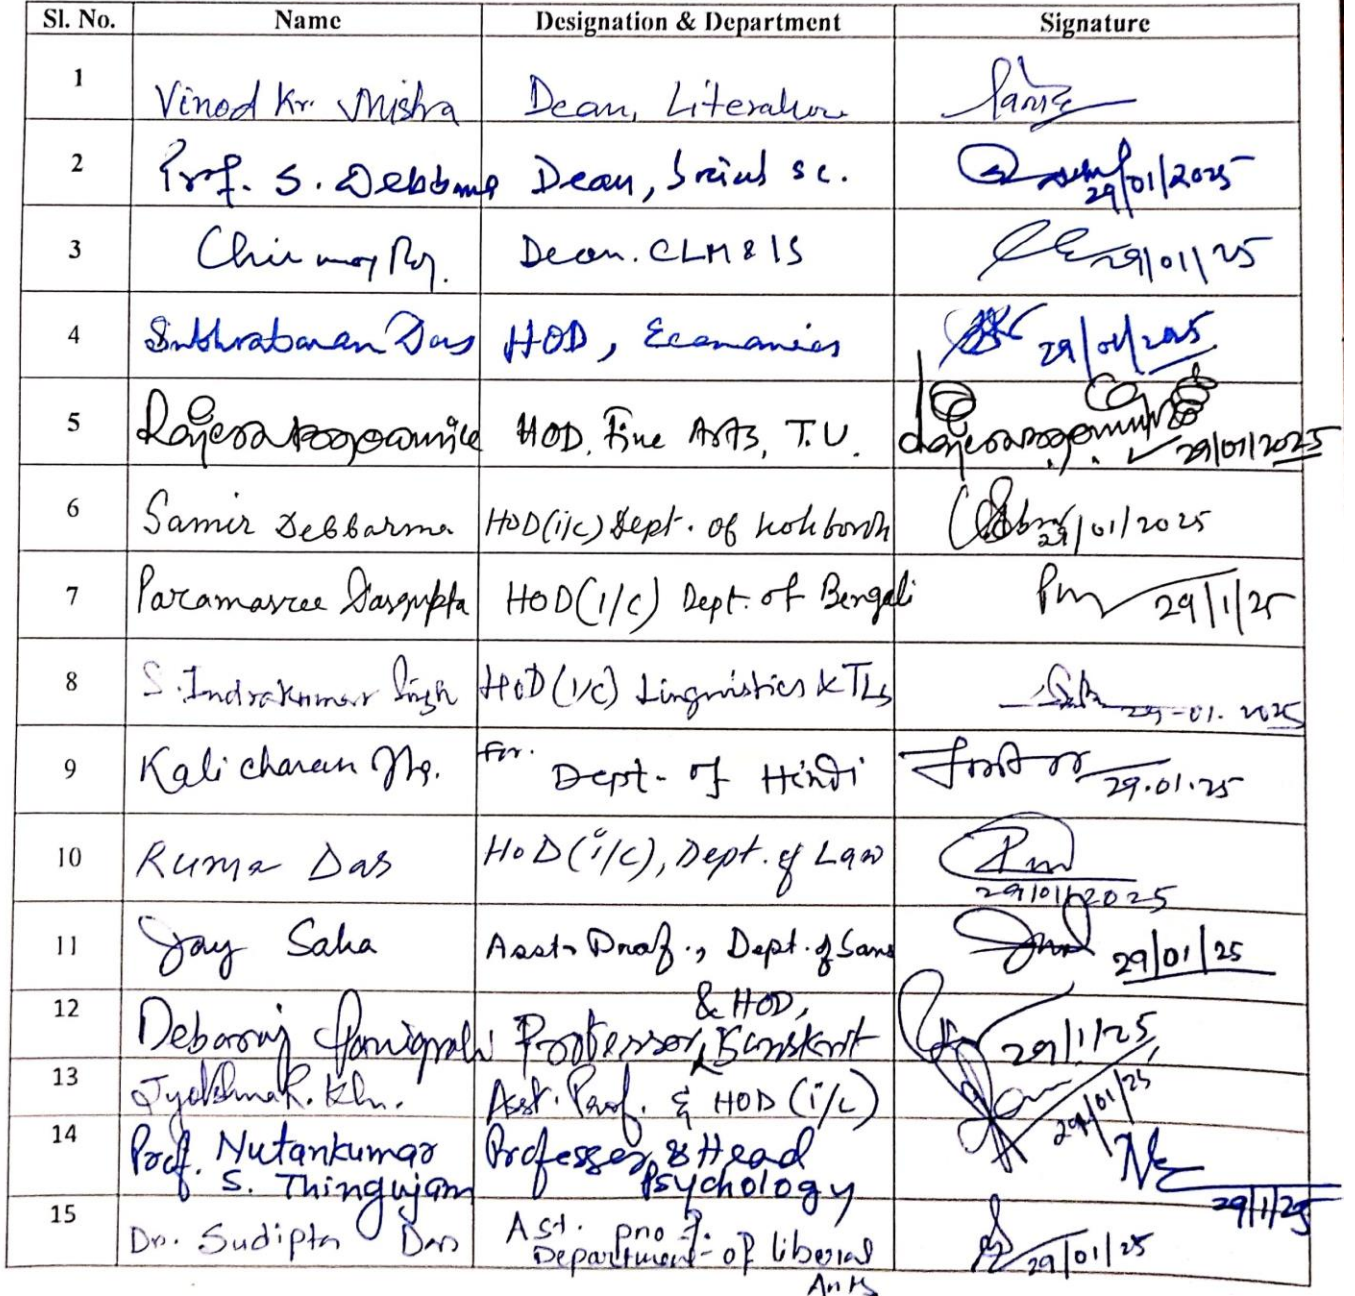 Sl. No. Name Designation & Department Signature
1 Vinod Kr. Mishra Dean, Literature
2 Prof. S. Debbarma Dean, Social Sc. 29/01/2025
3 Chinmoy Roy. Dean. CLM & IS 29/01/25
4 Subhrabaran Das HOD, Economics 29/01/2025
5 HOD, Fine Arts, T.U. 29/01/2025
6 Samir Debbarma HOD(i/c) Dept. of Kokborok 29/01/2025
7 Paramasree Dasgupta HOD(I/C) Dept. of Bengali 29/1/25
8 S. Indrakumar Singh HOD(I/C) Linguistics & TLs 29-01-2025
9 Kali charan for. Dept. of Hindi 29.01.25
10 Ruma Das HoD(i/c), Dept. of Law 29/01/2025
11 Jay Saha Asst. Prof., Dept. of Sans 29/01/25
& HOD,
12 Debaraj Panigrahi Professor, Sanskrit 29/1/25
13 Asst. Prof. & HOD (i/c) 29/01/25
14 Prof. Nutankumar Professor & Head
S. Thingujam Psychology 29/1/25
15 Dr. Sudipta Das Ast. prof.
Department of liberal 29/01/25
Arts